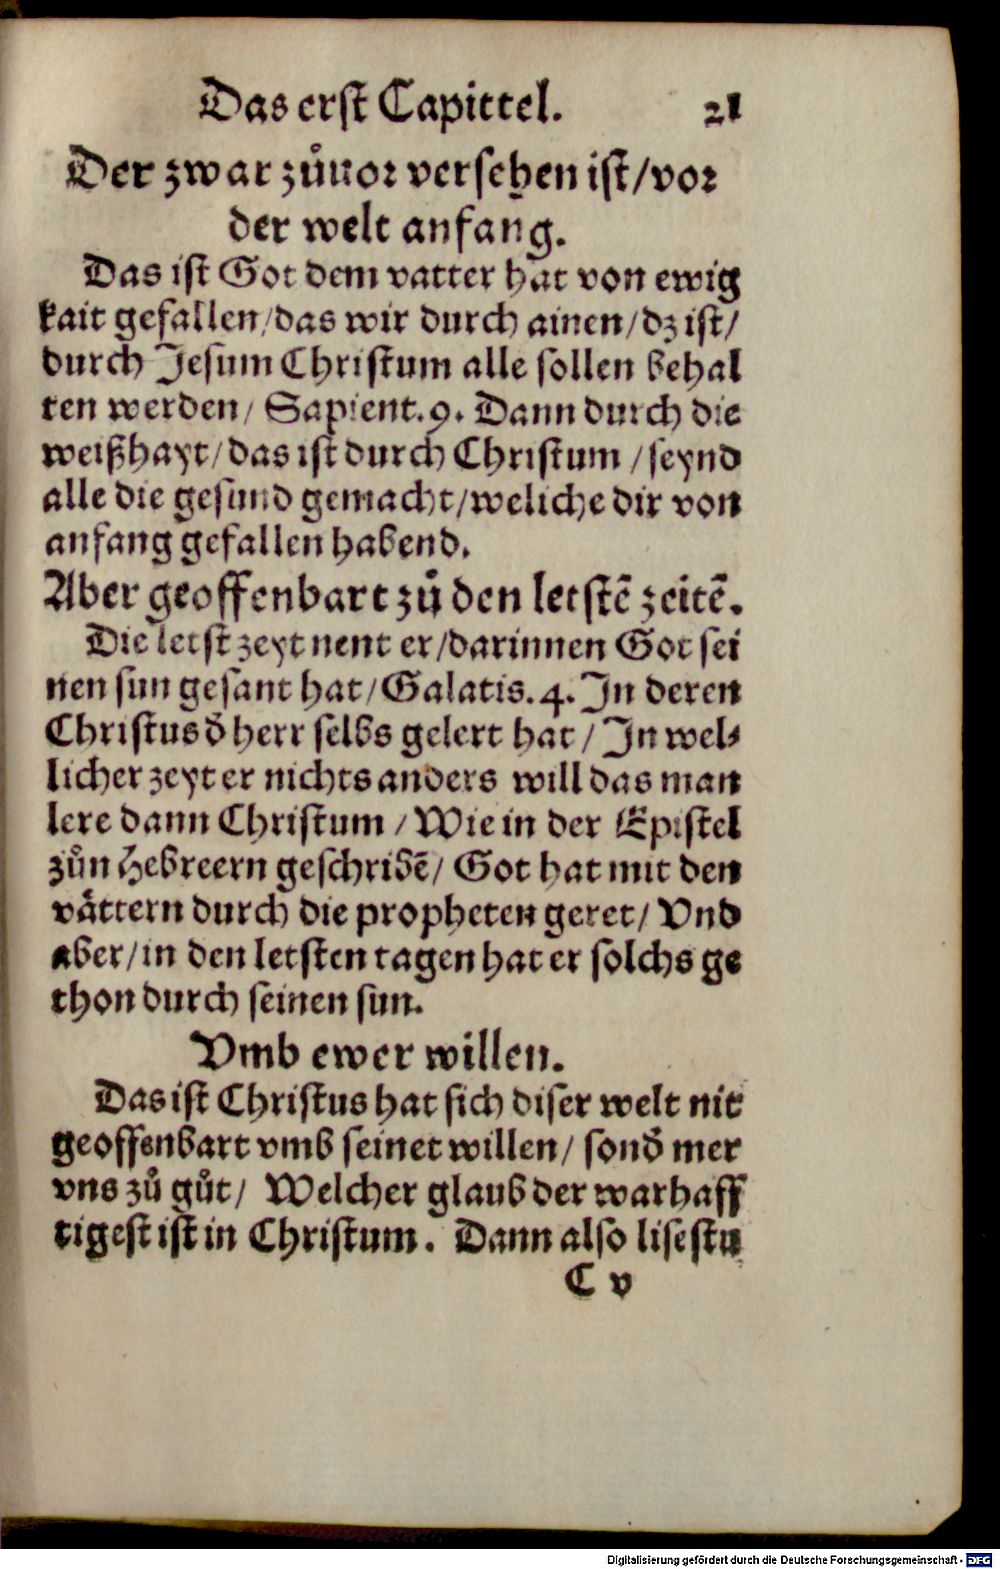 Das erst Capittel. 21
Der zwar zůuor versehen ist/vor
der welt anfang.
Das ist Got dem vatter hat von ewig
kait gefallen/das wir durch ainen/dz ist/
durch Jesum Christum alle sollen behal
ten werden/ Sapient.9. Dann durch die
weißhayt/das ist durch Christum /seynd
alle die gesund gemacht/weliche dir von
anfang gefallen habend.
Aber geoffenbart zů den letstē zeitē.
Die letst zeyt nent er/darinnen Got sei
nen sun gesant hat/Galatis.4. In deren
Christus d̄ herr selbs gelert hat/ In wel⸗
licher zeyt er nichts anders will das man
lere dann Christum /Wie in der Epistel
zůn Hebreern geschribē/ Got hat mit den
våttern durch die propheten geret/ Vnd
aber/in den letsten tagen hat er solchs ge
thon durch seinen sun.
Vmb ewer willen.
Das ist Christus hat sich diser welt nit
geoffenbart vmb seinet willen/ sond̄ mer
vns zů gůt/ Welcher glaub der warhaff
tigest ist in Christum. Dann also lisestu
C v
Digitalisierung gefördert durch die Deutsche Forschungsgemeinschaft - DFG